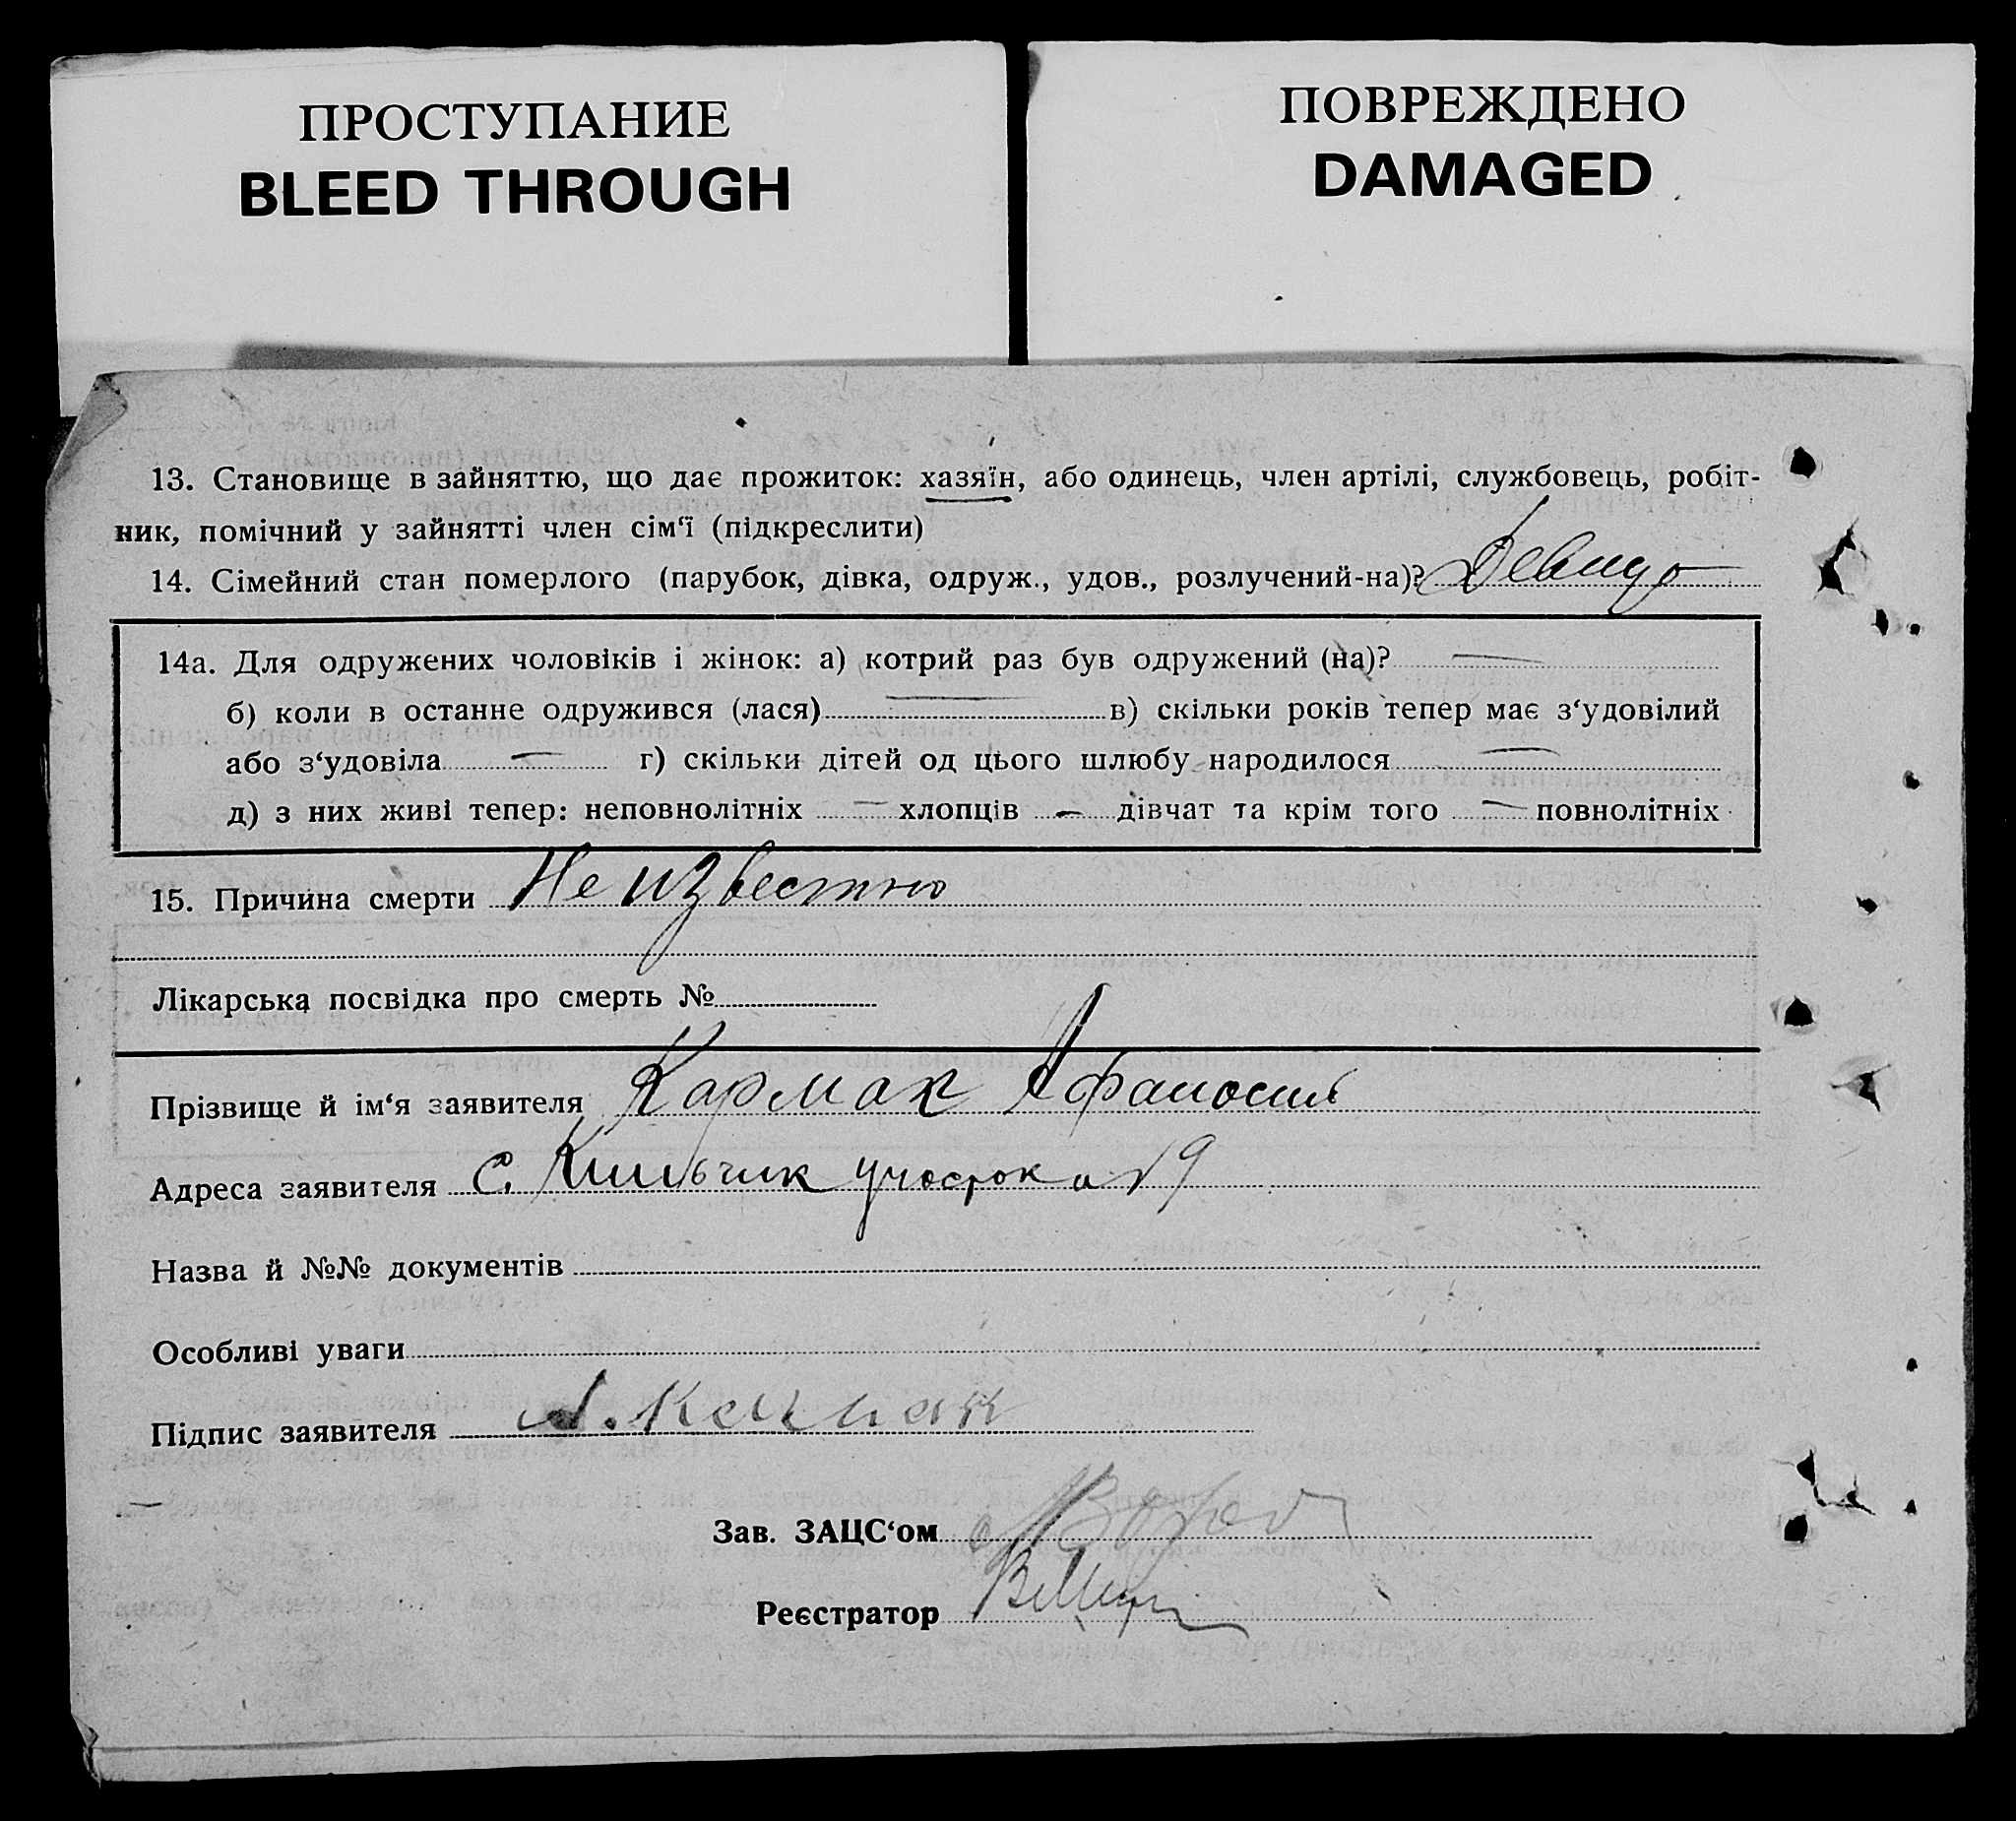 ПРОСТУПАНИЕ
BLEED THROUGH
ПОВРЕЖДЕНО
DAMAGED
13. Становище в зайняттю, що дає прожиток: хазяїн, або одинець, член артілі, службовець, робіт-
ник, помічний у зайнятті член сім‘ї (підкреслити)
14. Сімейний стан померлого (парубок, дівка, одруж., удов., розлучений-на)? Девица
14а. Для одружених чоловіків і жінок: а) котрий раз був одружений (на)? —
б) коли в останне одружився (лася) — в) скільки років тепер має з‘удовілий
або з‘удовіла — г) скільки дітей од цього шлюбу народилося —
д) з них живі тепер: неповнолітніх — хлопців — дівчат та крім того — повнолітніх
15. Причина смерти Не известно
Лікарська посвідка про смерть №
Прізвище й ім‘я заявителя Кармак Афанасий
Адреса заявителя с. Кильчик 19
Назва й №№ документів
Особливі уваги
Підпис заявителя А.
Зав. ЗАЦС‘ом
Реєстратор